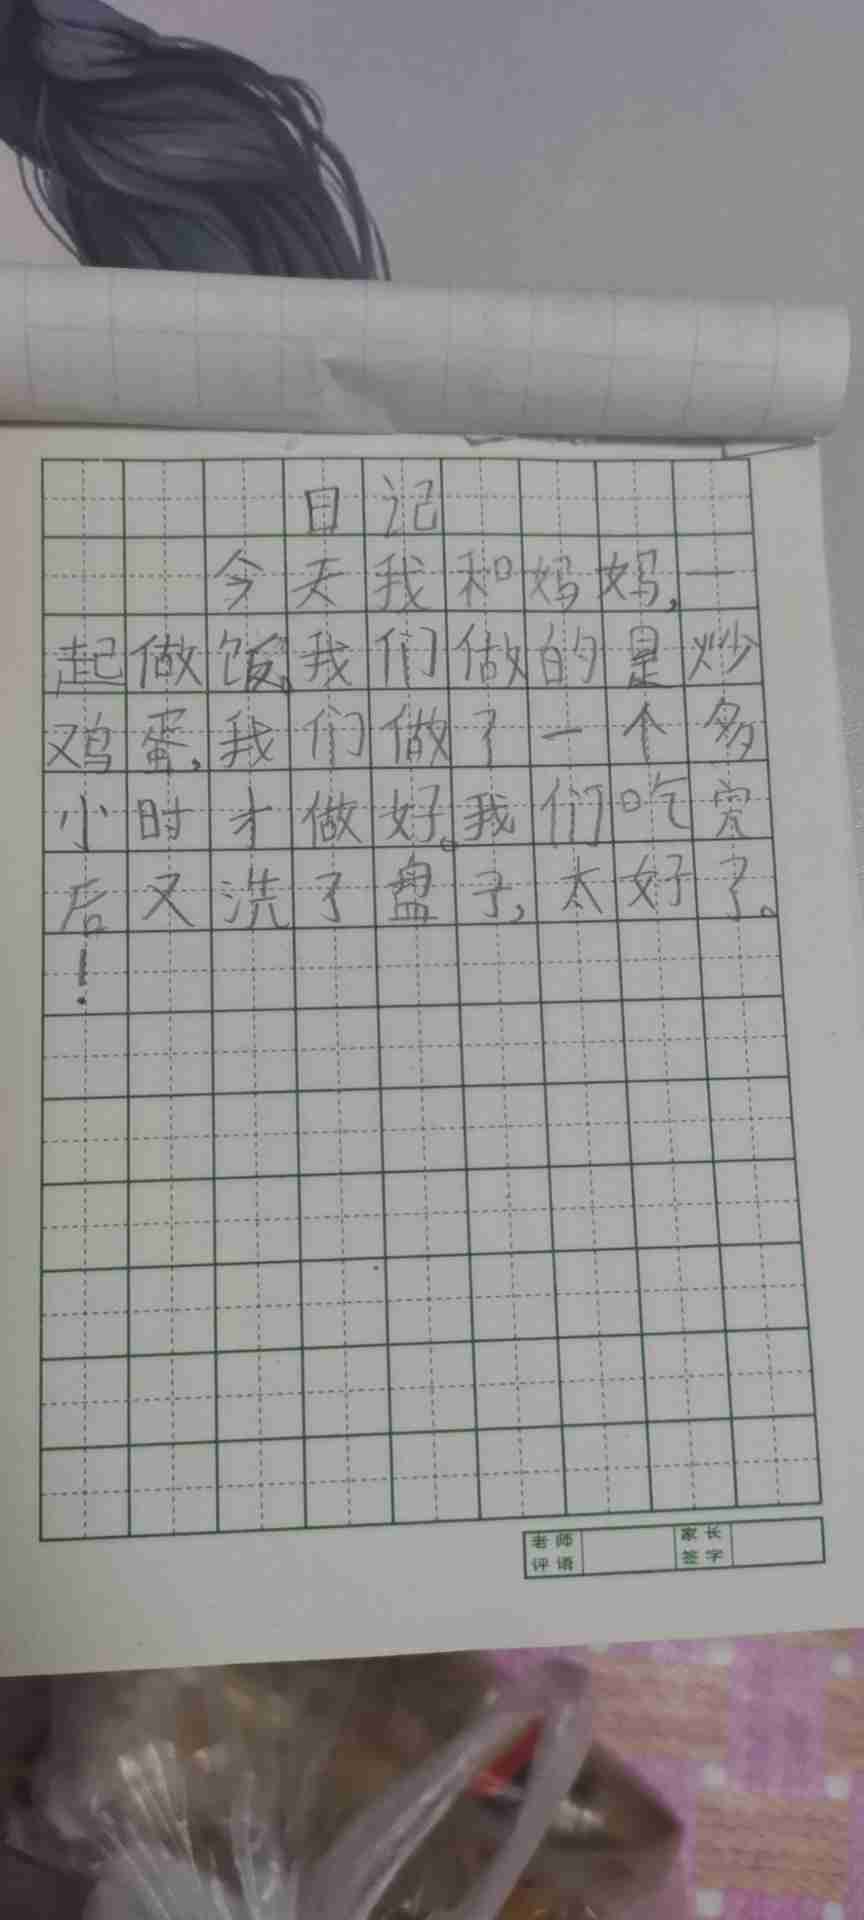 日记
今天我和妈妈,一
起做饭,我们做的是炒
鸡蛋,我们做了一个多
小时才做好。我们吃完
后又洗了盘子,太好了。
!
老师评语 家长签字